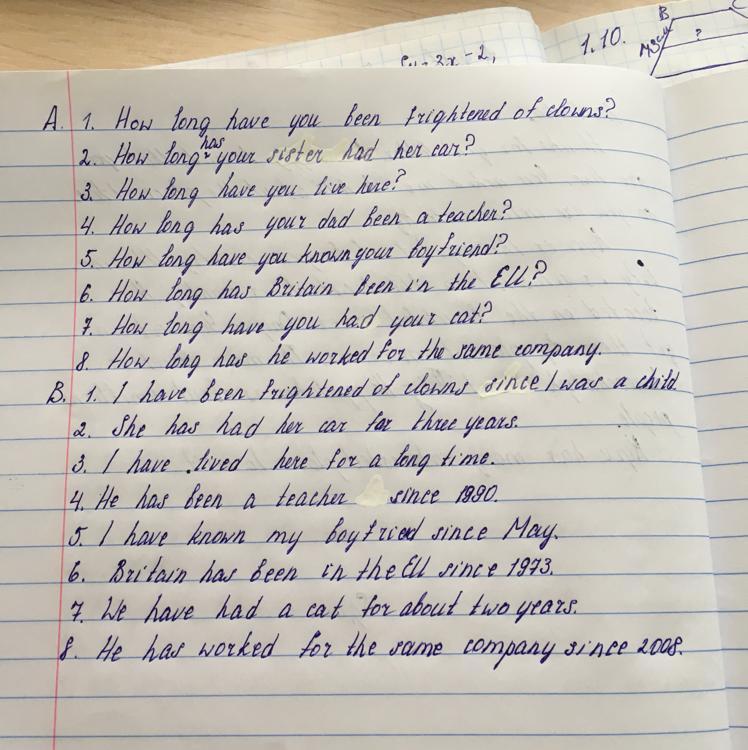 5y - 3x - 2,
1.10.
B
?
A. 1. How long have you been frightened of clowns?
2. How long has your sister had her car?
3. How long have you live here?
4. How long has your dad been a teacher?
5. How long have you known your boyfriend?
6. How long has Britain been in the EU?
7. How long have you had your cat?
8. How long has he worked for the same company.
B. 1. I have been frightened of clowns since I was a child.
2. She has had her car for three years.
3. I have lived here for a long time.
4. He has been a teacher since 1990.
5. I have known my boyfried since May.
6. Britain has been in the EU since 1973.
7. We have had a cat for about two years.
8. He has worked for the same company since 2008.